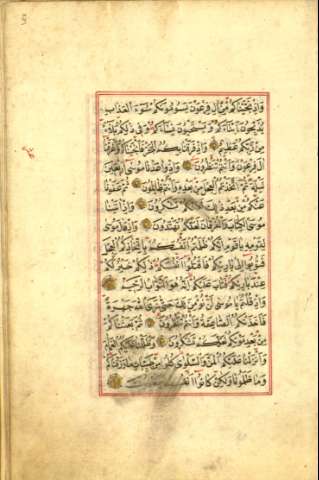 5
وَاِذْ نَجَّيْنَاكُمْ مِنْ اٰلِ فِرْعَوْنَ يَسُومُونَكُمْ سُوٓءَ الْعَذَابِ
يُذَبِّحُونَ اَبْنَآءَكُمْ وَيَسْتَحْيُونَ نِسَآءَكُمْ وَفِى ذٰلِكُمْ بَلَآءٌ
مِنْ رَبِّكُمْ عَظِيمٌ وَاِذْ فَرَقْنَا بِكُمُ الْبَحْرَ فَاَنْجَيْنَاكُمْ وَاَغْرَقْنَا
اٰلَ فِرْعَوْنَ وَاَنْتُمْ تَنْظُرُونَ وَاِذْ وٰعَدْنَا مُوسٰى اَرْبَعِينَ
لَيْلَةً ثُمَّ اتَّخَذْتُمُ الْعِجْلَ مِنْ بَعْدِهِ وَاَنْتُمْ ظَالِمُونَ ثُمَّ عَفَوْنَا
عَنْكُمْ مِنْ بَعْدِ ذٰلِكَ لَعَلَّكُمْ تَشْكُرُونَ وَاِذْ اٰتَيْنَا
مُوسَى الْكِتَابَ وَالْفُرْقَانَ لَعَلَّكُمْ تَهْتَدُونَ وَاِذْ قَالَ مُوسٰى
لِقَوْمِهِ يَا قَوْمِ اِنَّكُمْ ظَلَمْتُمْ اَنْفُسَكُمْ بِاتِّخَاذِكُمُ الْعِجْلَ
فَتُوبُوٓا اِلٰى بَارِئِكُمْ فَاقْتُلُوٓا اَنْفُسَكُمْ ذٰلِكُمْ خَيْرٌ لَكُمْ
عِنْدَ بَارِئِكُمْ فَتَابَ عَلَيْكُمْ اِنَّهُ هُوَ التَّوَّابُ الرَّحِيمُ
وَاِذْ قُلْتُمْ يَا مُوسٰى لَنْ نُؤْمِنَ لَكَ حَتّٰى نَرَى اللّٰهَ جَهْرَةً
فَاَخَذَتْكُمُ الصَّاعِقَةُ وَاَنْتُمْ تَنْظُرُونَ ثُمَّ بَعَثْنَاكُمْ
مِنْ بَعْدِ مَوْتِكُمْ لَعَلَّكُمْ تَشْكُرُونَ وَظَلَّلْنَا عَلَيْكُمُ الْغَمَامَ
وَاَنْزَلْنَا عَلَيْكُمُ الْمَنَّ وَالسَّلْوٰى كُلُوا مِنْ طَيِّبَاتِ مَا رَزَقْنَاكُمْ
وَمَا ظَلَمُونَا وَلٰكِنْ كَانُوٓا اَنْفُسَهُمْ يَظْلِمُونَ